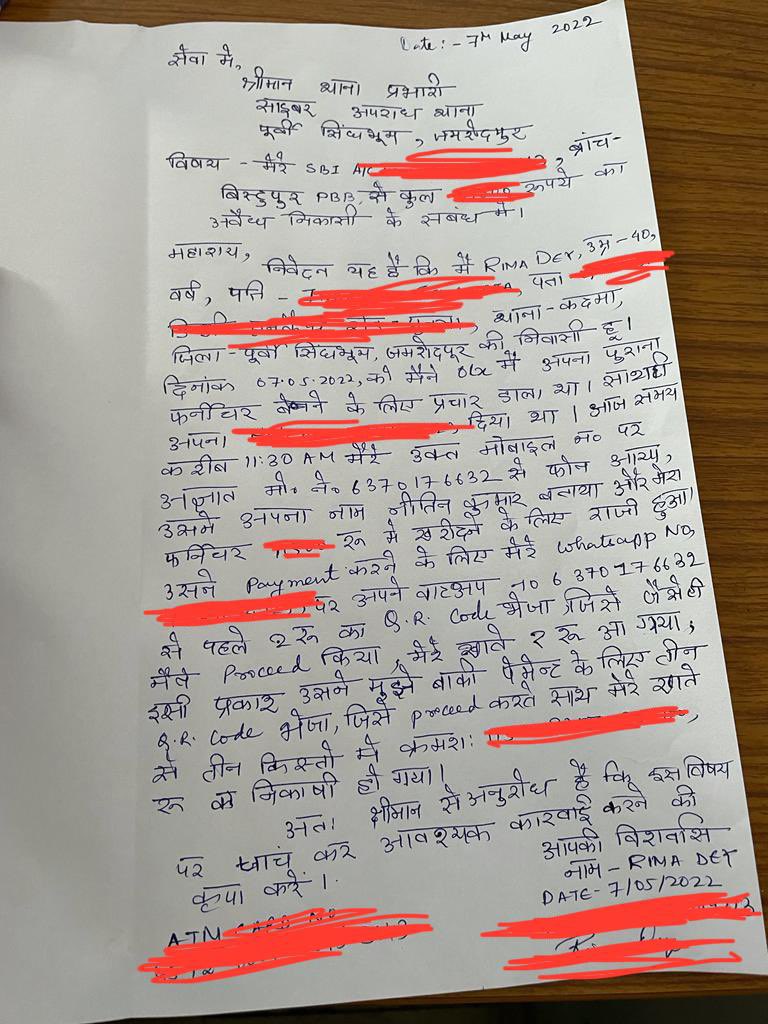 Date:- 7th May 2022
सेवा में,
श्रीमान थाना प्रभारी
साइबर अपराध थाना
पूर्वी सिंघभूम, जमशेदपुर
विषय - मेरे SBI A/C , ब्रांच-
बिस्टुपुर PBB, से कुल रूपये का
अवैध निकासी के संबंध में।
महाशय,
निवेदन यह है कि मैं RIMA DEY, उम्र-40,
वर्ष, पति - , पता
, थाना-कदमा,
जिला-पूर्वी सिंघभूम, जमशेदपुर की निवासी हू।
दिनांक 07.05.2022, को मैंने Olx में अपना पुराना
फर्नीचर बेचने के लिए प्रचार डाला था। साथही
अपना दिया था। आज समय
करीब 11:30 AM मेरे उक्त मोबाइल न० पर
अज्ञात मो० ने० 6370176632 से फोन आया,
उसने अपना नाम नीतिन कुमार बताया और मेरा
फर्निचर रू में खरीदने के लिए राजी हुआ।
उसने Payment करने के लिए मेरे Whatsapp NO,
पर अपने वाटअप no 6370176632
से पहले 2रू का Q.R. Code भेजा जिसे जैसेही
मैंने Proceed किया, मेरे खाते 2 रू आ गया,
इसी प्रकार उसने मुझे बाकी पेमेन्ट के लिए तीन
Q.R. Code भेजा, जिसे proceed करते साथ मेरे खाते
से तीन किस्तो में क्रमश:
रू का निकाषी हो गया।
अतः श्रीमान से अनुरोध है कि इस विषय
पर जांच कर आवश्यक कारवाई करने की
कृपा करें।
आपकी विश्वासि
नाम - RIMA DEY
DATE- 7/05/2022
ATM